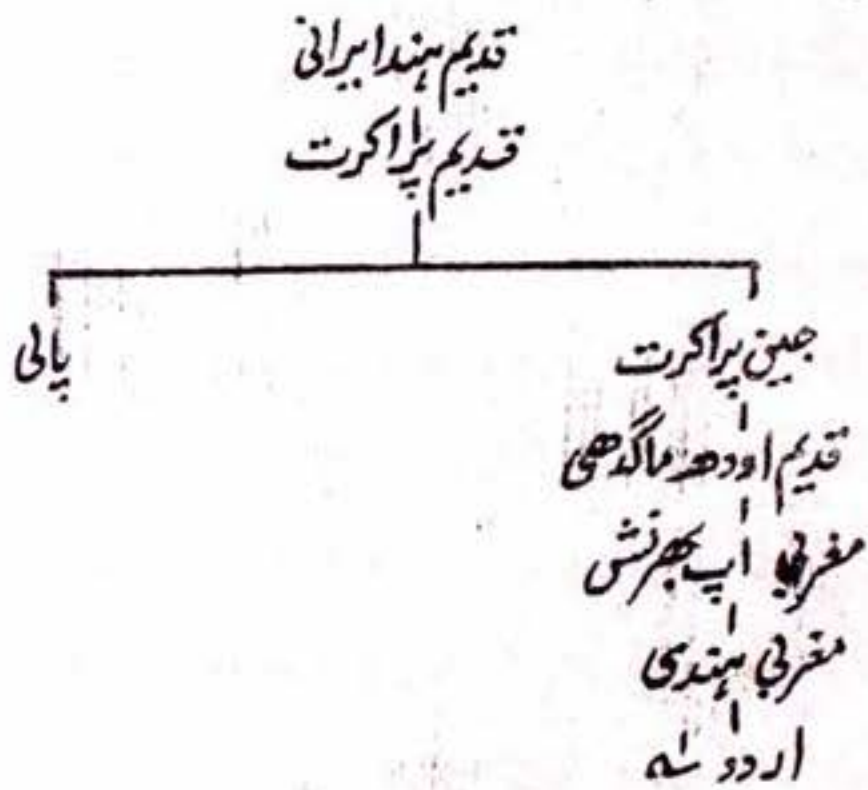 قدیم ہندایرانی
قدیم پراکرت
جین پراکرت
پالی
قدیم اودھ ماگدھی
مغربی اپ بھرنش
مغربی ہندی
اردو